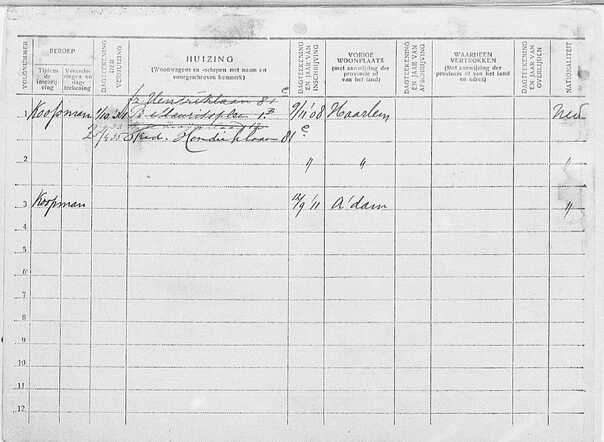 VOLGNUMMER
BEROEP
Tijdens de inschrijving
Veranderingen en dagteekening
DAGTEEKENING DER VERHUIZING
HUIZING
(Woonwagens en -schepen met naam en voorgeschreven kenmerk)
DAGTEEKENING EN JAAR VAN INSCHRIJVING
VORIGE WOONPLAATS
(met aanwijzing der provincie of van het land)
DAGTEEKENING EN JAAR VAN AFSCHRIJVING
WAARHEEN VERTROKKEN
(Met aanwijzing der provincie of van het land en adres)
DAGTEEKENING EN JAAR VAN OVERLIJDEN
NATIONALITEIT
Hendriklaan 81 e
1 Koopman 9/11 '08 Haarlem Ned
Hendriklaan 81 e
2 " " "
3 Koopman 12/9 '11 A'dam "
4
5
6
7
8
9
10
11
12